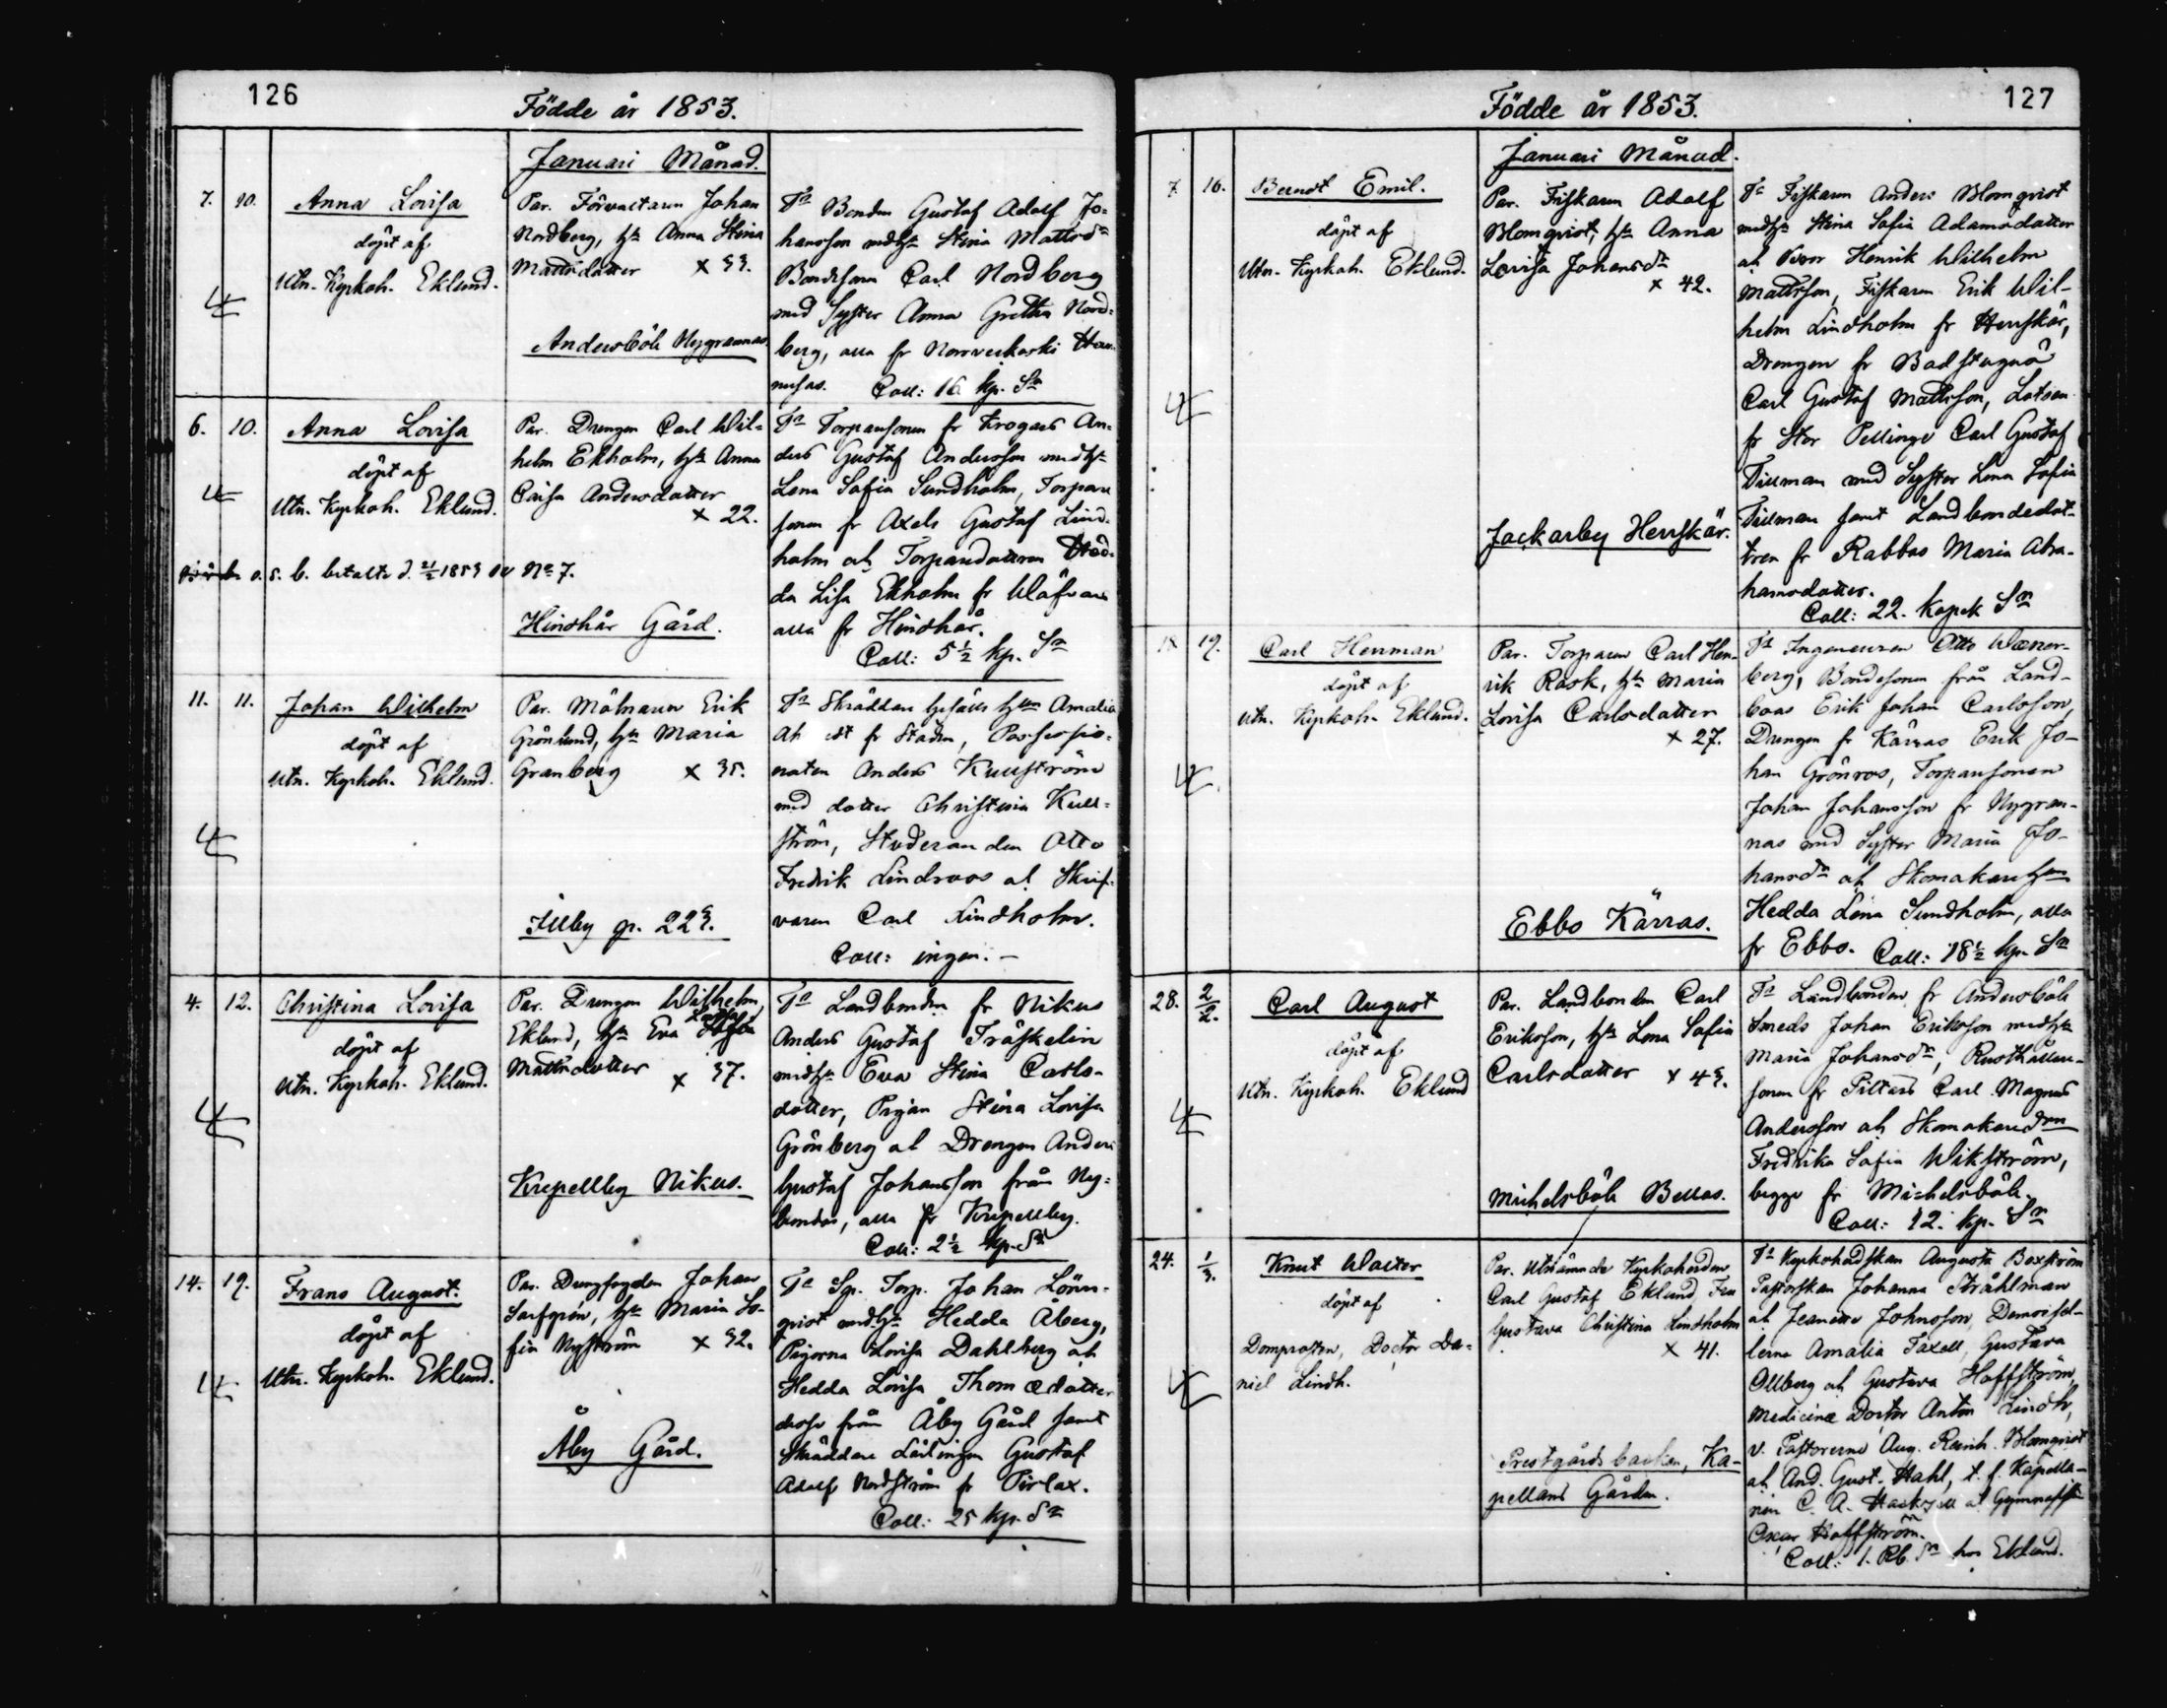 126
Födde år 1853.
Januari Månad.
7. 10. Anna Lovisa
döpt af
Utn. Kyrkoh. Eklund.
Par. Förvaltaren Johan
Nordberg, hu Anna Stina
Mattsdotter x 33.
Andersböle Nygrannas
Fa Bonden Gustaf Adolf Jo-
hansson medhu Stina Mattsdr
Bondesonen Carl Nordberg
med Syster Anna Gretha Nord-
berg, alla fr Norrveckoski
Coll: 16 kp. Sr
6. 10. Anna Lovisa
döpt af
Utn. Kyrkoh. Eklund.
o. s. b. betalte d. 21/2 1853 No 7.
Par. Drengen Carl Wil-
helm Ekholm, hu Anna
Caisa Andersdotter
x 22.
Hindhår Gård.
Fa Torparsonen fr Krogars An-
ders Gustaf Andersson medhu
Lena Sofia Sundholm, Torpare
sonen fr Axels Gustaf Lind-
holm och Torparedottren Hed-
da Lisa Ekholm fr
alla fr Hindhår.
Coll: 5 1/2 kp. Sr
11. 11. Johan Wilhelm
döpt af
Utn. Kyrkoh. Eklund.
Par. Mölnaren Erik
Grönlund, hu Maria
Granberg x 35.
Illby gr. 223.
Fa Skräddare Amalia
fr Staden, Possessio-
naten Anders Kullström
med dotter Christina Kull-
ström, Studeranden Otto
Fredrik Lindroos al Skrif-
varen Carl Lindholm.
Coll: ingen. -
4. 12. Christina Lovisa
döpt af
Utn. Kyrkoh. Eklund.
Par. Drengen Wilhelm
Eklund, hu Eva Lovisa
Mattsdotter x 37.
Krepellby Nikus.
Fa Landbonden fr Nikus
Anders Gustaf Träskelin
medhu Eva Stina Carls-
dotter, Pigan Stina Lovisa
Grönberg al Drengen Anders
Gustaf Johansson från Ny-
bondas, alla fr Krepellby.
Coll: 2 1/2 kp. Sr
14. 19. Frans August.
döpt af
Utn. Kyrkoh. Eklund.
Par. Drengfogden Johan
Safgrén, hu Maria So-
fia Nyström x 32.
Åby Gård.
Fa Sp. Torp. Johan Lönn-
qvist medhu Hedda Åberg,
Pigorna Lovisa Dahlberg och
Hedda Lovisa Thomædotter
desse från Åby Gård samt
Skräddare Lärlingen Gustaf
Adolf Nordström fr Pirlax.
Coll: 25 kp. Sr
127
Födde år 1853.
Januari Månad.
7 16. Berndt Emil.
döpt af
Utn. Kyrkoh. Eklund.
Par. Fiskaren Adolf
Blomqvist, hu Anna
Lovisa Johansdr
x 42.
Jackarby Herrskär.
Fa Fiskaren Anders Blomqvist
medhu Stina Sofia Adamsdotter
och Bror Henrik Wilhelm
Mattsson, Fiskaren Erik Wil-
helm Lindholm fr Herrskär,
Drengen fr Badstugnä
Carl Gustaf Mattsson, Lotsen
fr Stor Pellinge Carl Gustaf
Tillman med Syster Lena Sofia
Tillman samt Landbondedot-
tren fr Rabbas Maria Abra-
hamsdotter.
Coll: 22. kopek Sr
18 19. Carl Herrman
döpt af
Utn. Kyrkoh. Eklund.
Par. Torparen Carl Hen-
rik Rask, hu Maria
Lovisa Carlsdotter
x 27.
Ebbo Kärras.
Fa Ingenieuren Otto Wæner-
berg, Bondesonen från Land-
boas Erik Johan Carlsson,
Drengen fr Kärras Erik Jo-
han Grönroos, Torparsonen
Johan Johansson fr Nygran-
nas med Syster Maria Jo-
hansdr och Skomakare
Hedda Lena Sundholm, alla
fr Ebbo. Coll: 18 1/2 kp. Sr
28. 2/2. Carl August
döpt af
Utn. Kyrkoh. Eklund
Par. Landbonden Carl
Eriksson, hu Lena Sofia
Carlsdotter x 43.
Michelsböle Bellas.
Fa Landbonden fr Andersböle
Smeds Johan Eriksson medhu
Maria Johansdr, Rusthållare-
sonen fr Pittars Carl Magnus
Andersson och Skomakare
Fredrika Sofia Wikström,
begge fr Michelsböle.
Coll: 12. kp. Sr
24. 1/3. Knut Walter
döpt af
Domprosten, Doctor Da-
niel Lindh.
Par. Utnämnde Kyrkoherden
Carl Gustaf Eklund, Fru
Gustava Christina Lindholm
x 41.
Prestgårds backen, Ka-
pellans Gården.
Fa Kyrkoherdskan Augusta Boxström
Pastorskan Johanna Stråhlman
och Jeanette Johnsson, Demoisel-
lerna Amalia Taxell, Gustava
Ollberg och Gustava Hoffström,
Medicinæ Doctor Anton Lindh,
v. Pastorerne Aug. Reinh. Blomqvist
och And. Gust. Stahl, t. f. Kapella-
nen C. A. al Gymnasisten
Oscar Hoffström.
Coll: 1. Rb. Sr hos Eklund.